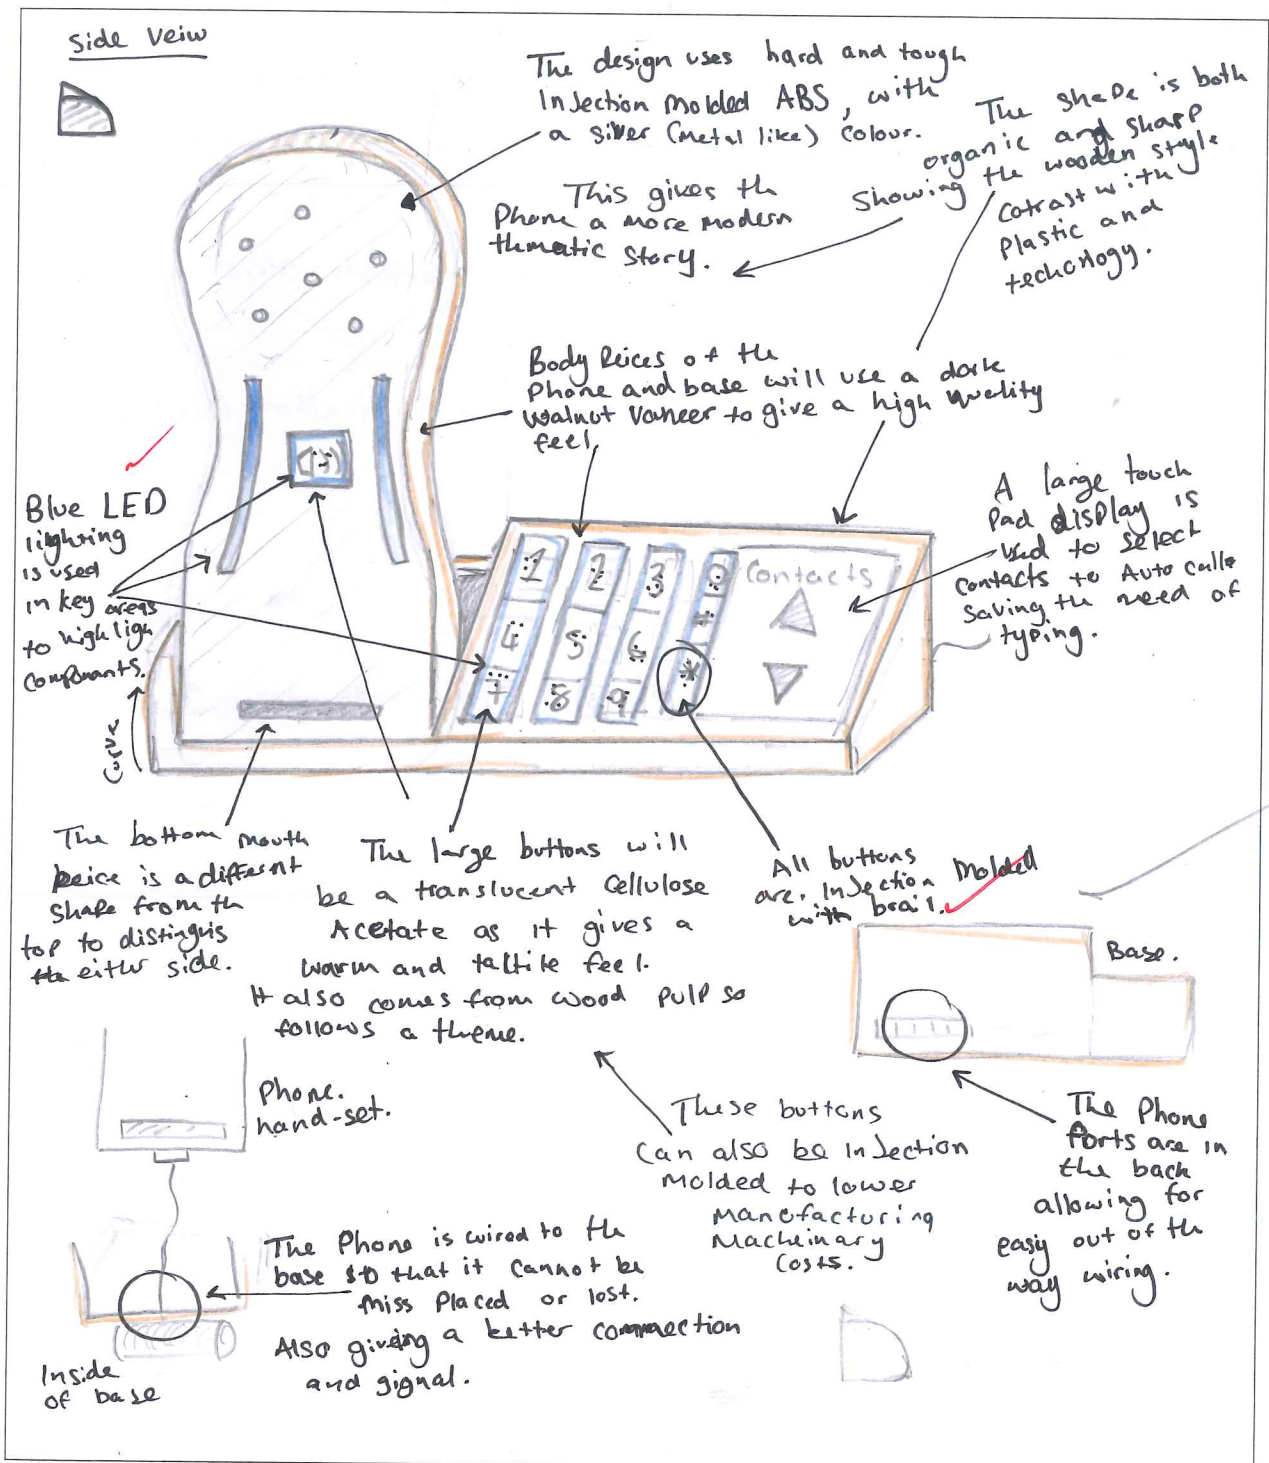 Side Veiw
The design uses hard and tough
Injection Molded ABS, with
a silver (metal like) colour.
This gives th
Phone a more modern
thematic story.
The shape is both
organic and sharp
Showing the wooden style
Cotrast with
Plastic and
techonlogy.
Body Peices of the
Phone and base will use a dark
walnut Vaneer to give a high quality
feel.
Blue LED
lighring
is used
in key areas
to high ligh
Componants.
A large touch
Pad display is
used to select
contacts to Auto call
saving the need of
typing.
1 2 3 0
4 5 6 #
7 8 9 *
Contacts
Curve
The bottom mouth
peice is a differnt
shape from th
top to distinguis
either side.
The large buttons will
be a translucent Cellulose
Acetate as it gives a
warm and taltile feel.
It also comes from wood pulp so
follows a theme.
All buttons
are. Injection Molded
with brail.
Base.
Phone.
hand-set.
These buttons
Can also be Injection
Molded to lower
Manufacturing
Macheinary
Costs.
The Phone
Ports are in
the back
allowing for
easy out of the
way wiring.
The Phone is wired to the
base so that it cannot be
Miss Placed or lost.
Also giving a better connection
and signal.
Inside
of base